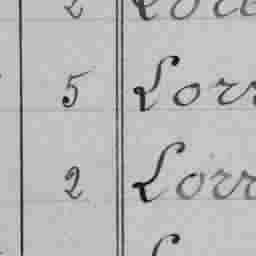 2
5 Lorr
2 Lorr